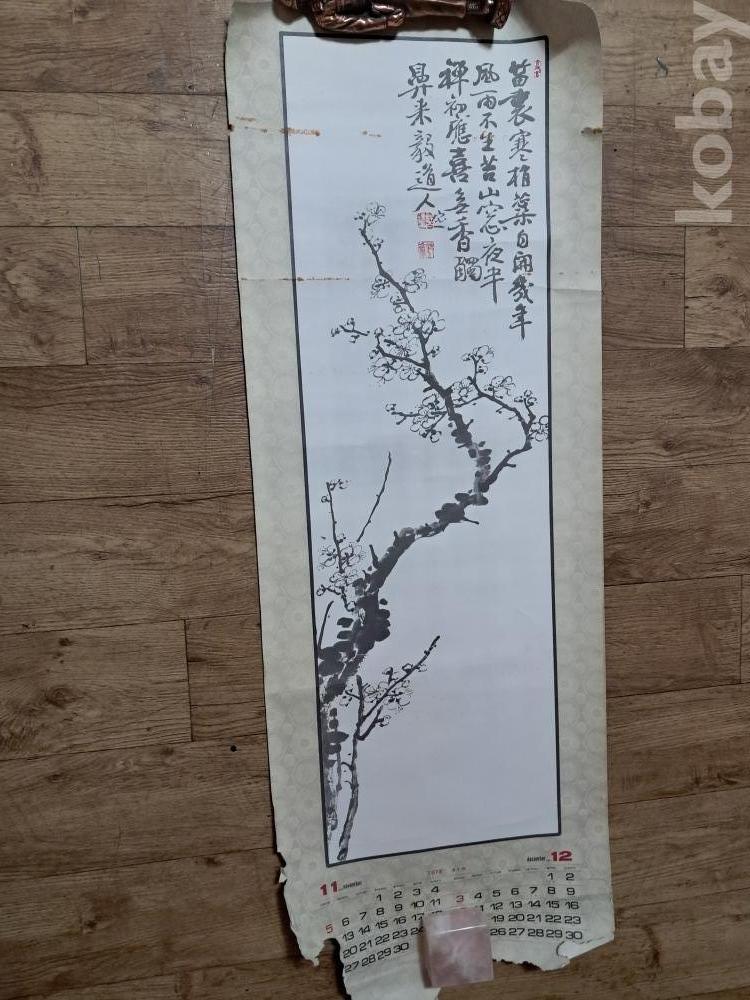 裏寒梢蘂自開幾年
風雨不生苔山窓夜半
禪初應喜香觸
鼻来毅道人
kobay
11 november
1978
december 12
1 2 3 4
5 6 7 8 9 10 11
13 14 15 16 17
20 21 22 23
27 28 29 30
1 2
3 4 5 6 7 8 9
11 12 13 14 15 16
19 20 21 22 23
26 27 28 29 30